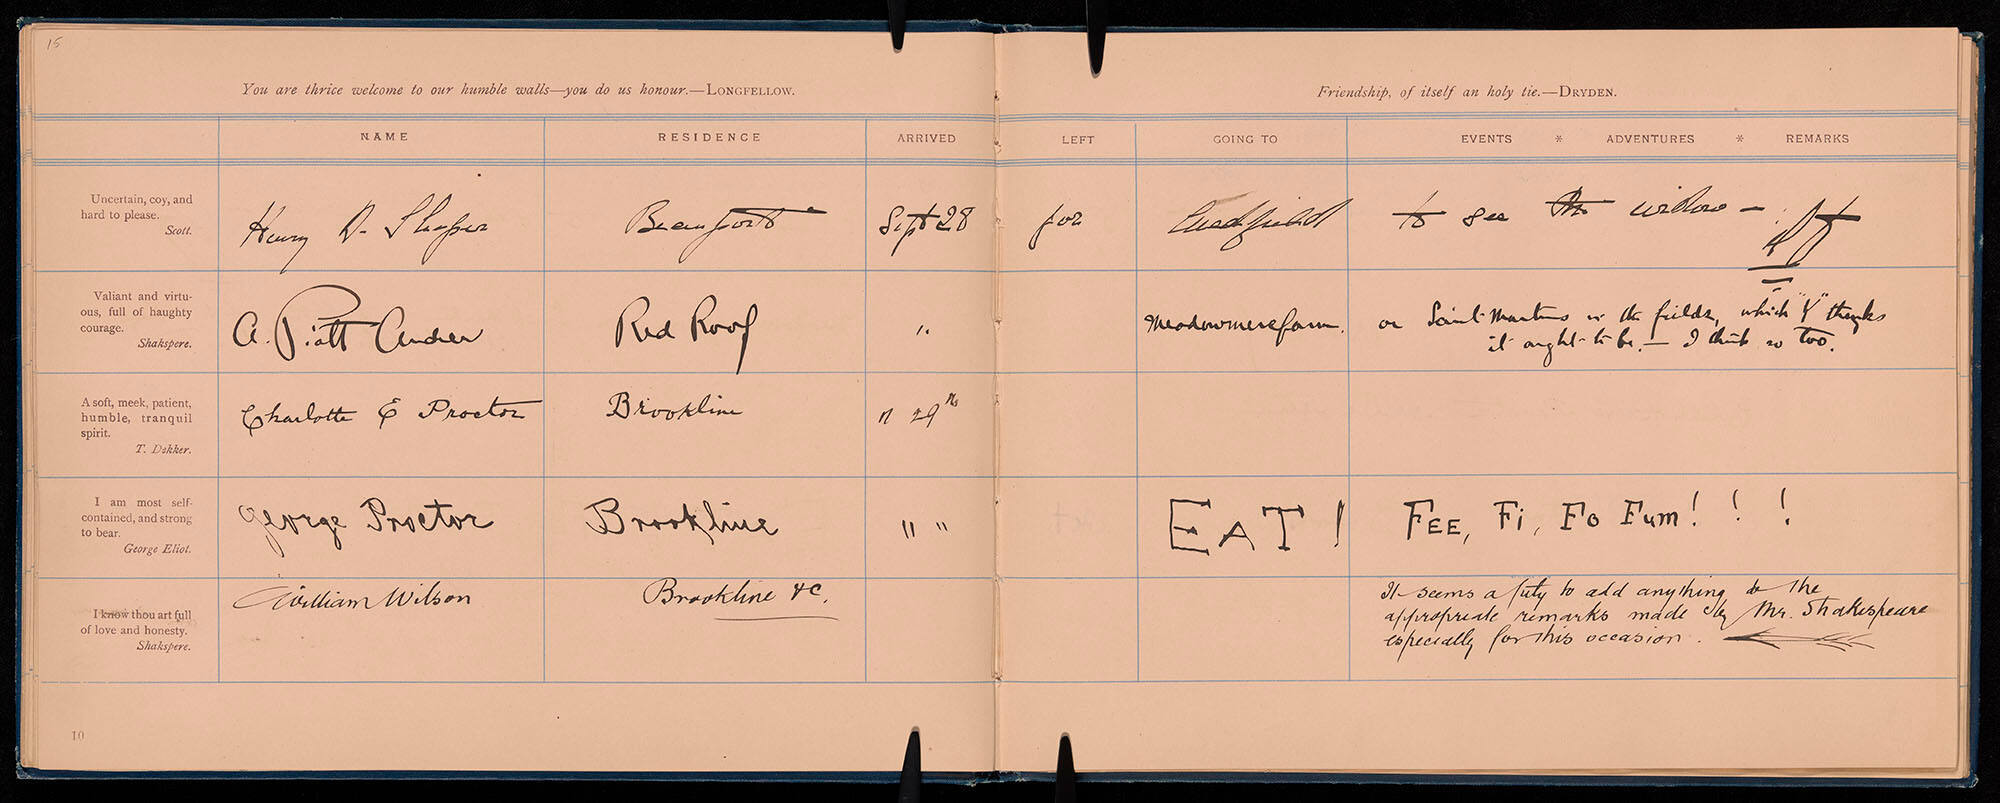 15
You are thrice welcome to our humble walls—you do us honour.—LONGFELLOW.
Friendship, of itself an holy tie.—DRYDEN.
NAME RESIDENCE ARRIVED LEFT GOING TO EVENTS * ADVENTURES * REMARKS
Uncertain, coy, and
hard to please.
Scott.
Henry D. Sleeper Sept 28 for to see the widow —
Valiant and virtu-
ous, full of haughty
courage.
Shakspere.
A. Piatt Andrew Red Roof " Meadowmere farm. or Saint Martins in the fields, which "Y" thinks
it ought to be. — I think so too.
A soft, meek, patient,
humble, tranquil
spirit.
T. Dekker.
Charlotte E Proctor Brookline " 29th
I am most self-
contained, and strong
to bear.
George Eliot.
George Proctor Brookline " " EAT! FEE, Fi, Fo Fum! ! !
I know thou art full
of love and honesty.
Shakspere.
William Wilson Brookline &c.
It seems a pity to add anything to the
appropriate remarks made by Mr. Shakespeare
especially for this occasion.
10